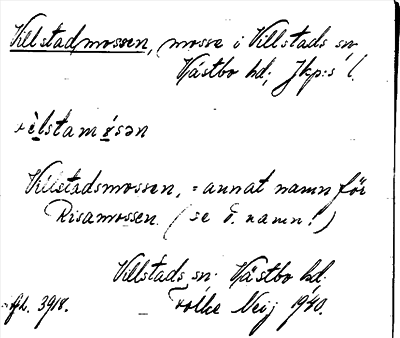 Villstadmossen, mosse i Villstads sn.
Västbo hd; Jkp:s l.
vèlstamósən
Villstadsmossen, = annat namn för
Risamossen. (se d. namn!)
Villstads sn. Västbo hd.
fh. 3918. Folke Neij 1940.